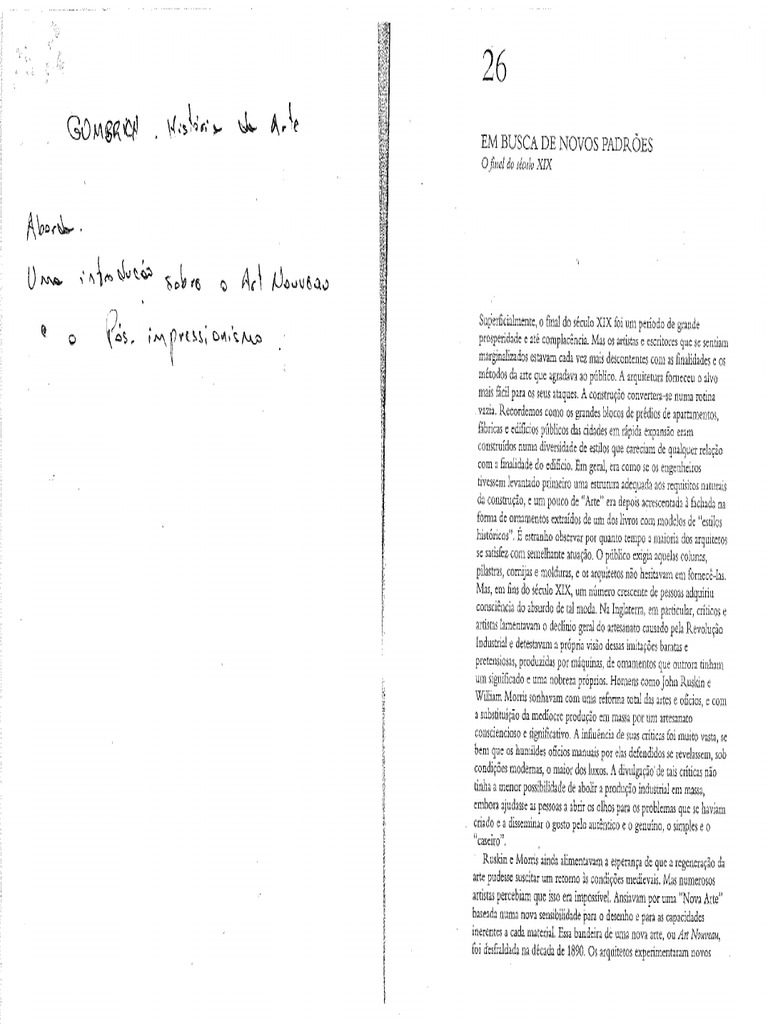 GOMBRICH. História da Arte
Aborda.
Uma introdução sobre o Art Nouveau
e o Pós. impressionismo.
26
EM BUSCA DE NOVOS PADRÕES
O final do século XIX
Superficialmente, o final do século XIX foi um período de grande
prosperidade e até complacência. Mas os artistas e escritores que se sentiam
marginalizados estavam cada vez mais descontentes com as finalidades e os
métodos da arte que agradava ao público. A arquitetura forneceu o alvo
mais fácil para os seus ataques. A construção convertera-se numa rotina
vazia. Recordemos como os grandes blocos de prédios de apartamentos,
fábricas e edifícios públicos das cidades em rápida expansão eram
construídos numa diversidade de estilos que careciam de qualquer relação
com a finalidade do edifício. Em geral, era como se os engenheiros
tivessem levantado primeiro uma estrutura adequada aos requisitos naturais
da construção, e um pouco de "Arte" era depois acrescentada à fachada na
forma de ornamentos extraídos de um dos livros com modelos de "estilos
históricos". É estranho observar por quanto tempo a maioria dos arquitetos
se satisfez com semelhante atuação. O público exigia aquelas colunas,
pilastras, cornijas e molduras, e os arquitetos não hesitavam em fornecê-las.
Mas, em fins do século XIX, um número crescente de pessoas adquiriu
consciência do absurdo de tal moda. Na Inglaterra, em particular, críticos e
artistas lamentavam o declínio geral do artesanato causado pela Revolução
Industrial e detestavam a própria visão dessas imitações baratas e
pretensiosas, produzidas por máquinas, de ornamentos que outrora tinham
um significado e uma nobreza próprios. Homens como John Ruskin e
William Morris sonhavam com uma reforma total das artes e ofícios, e com
a substituição da medíocre produção em massa por um artesanato
consciencioso e significativo. A influência de suas críticas foi muito vasta, se
bem que os humildes ofícios manuais por elas defendidos se revelassem, sob
condições modernas, o maior dos luxos. A divulgação de tais críticas não
tinha a menor possibilidade de abolir a produção industrial em massa,
embora ajudasse as pessoas a abrir os olhos para os problemas que se haviam
criado e a disseminar o gosto pelo autêntico e o genuíno, o simples e o
"caseiro".
Ruskin e Morris ainda alimentavam a esperança de que a regeneração da
arte pudesse suscitar um retorno às condições medievais. Mas numerosos
artistas percebiam que isso era impossível. Ansiavam por uma "Nova Arte"
baseada numa nova sensibilidade para o desenho e para as capacidades
inerentes a cada material. Essa bandeira de uma nova arte, ou Art Nouveau,
foi desfraldada na década de 1890. Os arquitetos experimentaram novos